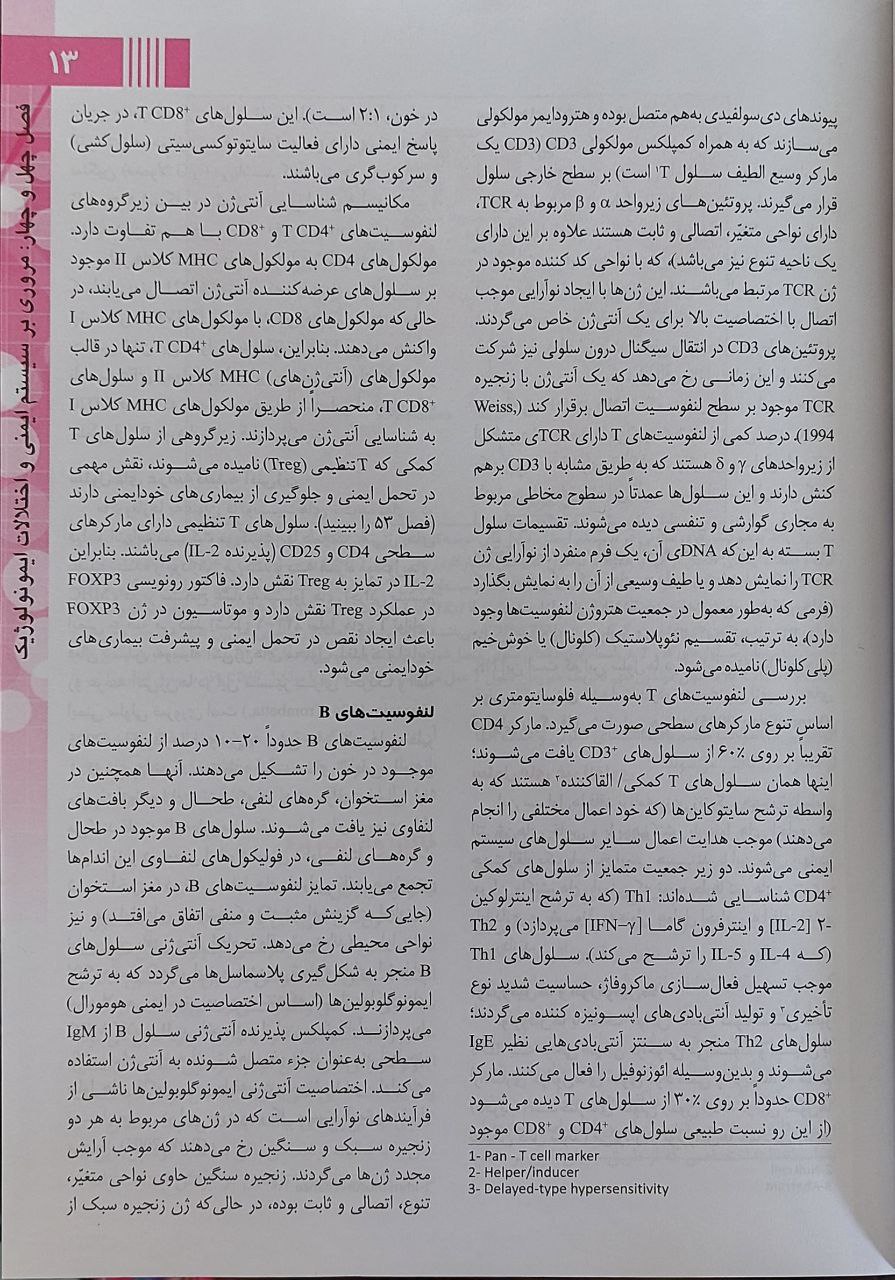 ۱۳
فصل چهل و چهار: مروری بر سیستم ایمنی و اختلالات ایمونولوژیک
پیوندهای دی‌سولفیدی به‌هم متصل بوده و هترودایمر مولکولی
می‌سازند که به همراه کمپلکس مولکولی CD3 (CD3 یک
مارکر وسیع الطیف سلول T¹ است) بر سطح خارجی سلول
قرار می‌گیرند. پروتئین‌های زیرواحد α و β مربوط به TCR،
دارای نواحی متغیّر، اتصالی و ثابت هستند علاوه بر این دارای
یک ناحیه تنوع نیز می‌باشد)، که با نواحی کد کننده موجود در
ژن TCR مرتبط می‌باشند. این ژن‌ها با ایجاد نوآرایی موجب
اتصال با اختصاصیت بالا برای یک آنتی‌ژن خاص می‌گردند.
پروتئین‌های CD3 در انتقال سیگنال درون سلولی نیز شرکت
می‌کنند و این زمانی رخ می‌دهد که یک آنتی‌ژن با زنجیره
TCR موجود بر سطح لنفوسیت اتصال برقرار کند (Weiss,
1994). درصد کمی از لنفوسیت‌های T دارای TCRی متشکل
از زیرواحدهای γ و δ هستند که به طریق مشابه با CD3 برهم
کنش دارند و این سلول‌ها عمدتاً در سطوح مخاطی مربوط
به مجاری گوارشی و تنفسی دیده می‌شوند. تقسیمات سلول
T بسته به این‌که DNAی آن، یک فرم منفرد از نوآرایی ژن
TCR را نمایش دهد و یا طیف وسیعی از آن را به نمایش بگذارد
(فرمی که به‌طور معمول در جمعیت هتروژن لنفوسیت‌ها وجود
دارد)، به ترتیب، تقسیم نئوپلاستیک (کلونال) یا خوش‌خیم
(پلی‌کلونال) نامیده می‌شود.
بررسی لنفوسیت‌های T به‌وسیله فلوسایتومتری بر
اساس تنوع مارکرهای سطحی صورت می‌گیرد. مارکر CD4
تقریباً بر روی ۶۰٪ از سلول‌های CD3⁺ یافت می‌شوند؛
اینها همان سلول‌های T کمکی/ القاکننده² هستند که به
واسطه ترشح سایتوکاین‌ها (که خود اعمال مختلفی را انجام
می‌دهند) موجب هدایت اعمال سایر سلول‌های سیستم
ایمنی می‌شوند. دو زیر جمعیت متمایز از سلول‌های کمکی
CD4⁺ شناسایی شده‌اند: Th1 (که به ترشح اینترلوکین
-۲ [IL-2] و اینترفرون گاما [IFN-γ] می‌پردازد) و Th2
(که IL-4 و IL-5 را ترشح می‌کند). سلول‌های Th1
موجب تسهیل فعال‌سازی ماکروفاژ، حساسیت شدید نوع
تأخیری³ و تولید آنتی‌بادی‌های اپسونیزه کننده می‌گردند؛
سلول‌های Th2 منجر به سنتز آنتی‌بادی‌هایی نظیر IgE
می‌شوند و بدین‌وسیله ائوزنوفیل را فعال می‌کنند. مارکر
CD8⁺ حدوداً بر روی ۳۰٪ از سلول‌های T دیده می‌شود
(از این رو نسبت طبیعی سلول‌های CD4⁺ و CD8⁺ موجود
1- Pan - T cell marker
2- Helper/inducer
3- Delayed-type hypersensitivity
در خون، ۲:۱ است). این سلول‌های T CD8⁺، در جریان
پاسخ ایمنی دارای فعالیت سایتوتوکسی‌سیتی (سلول‌کشی)
و سرکوب‌گری می‌باشند.
مکانیسم شناسایی آنتی‌ژن در بین زیرگروه‌های
لنفوسیت‌های T CD4⁺ و CD8⁺ با هم تفاوت دارد.
مولکول‌های CD4 به مولکول‌های MHC کلاس II موجود
بر سلول‌های عرضه‌کننده آنتی‌ژن اتصال می‌یابند، در
حالی‌که مولکول‌های CD8، با مولکول‌های MHC کلاس I
واکنش می‌دهند. بنابراین، سلول‌های T CD4⁺، تنها در قالب
مولکول‌های (آنتی‌ژن‌های) MHC کلاس II و سلول‌های
T CD8⁺، منحصراً از طریق مولکول‌های MHC کلاس I
به شناسایی آنتی‌ژن می‌پردازند. زیرگروهی از سلول‌های T
کمکی که T تنظیمی (Treg) نامیده می‌شوند، نقش مهمی
در تحمل ایمنی و جلوگیری از بیماری‌های خودایمنی دارند
(فصل ۵۳ را ببینید). سلول‌های T تنظیمی دارای مارکرهای
سطحی CD4 و CD25 (پذیرنده IL-2) می‌باشند. بنابراین
IL-2 در تمایز به Treg نقش دارد. فاکتور رونویسی FOXP3
در عملکرد Treg نقش دارد و موتاسیون در ژن FOXP3
باعث ایجاد نقص در تحمل ایمنی و پیشرفت بیماری‌های
خودایمنی می‌شود.
لنفوسیت‌های B
لنفوسیت‌های B حدوداً ۲۰-۱۰ درصد از لنفوسیت‌های
موجود در خون را تشکیل می‌دهند. آنها همچنین در
مغز استخوان، گره‌های لنفی، طحال و دیگر بافت‌های
لنفاوی نیز یافت می‌شوند. سلول‌های B موجود در طحال
و گره‌های لنفی، در فولیکول‌های لنفاوی این اندام‌ها
تجمع می‌یابند. تمایز لنفوسیت‌های B، در مغز استخوان
(جایی‌که گزینش مثبت و منفی اتفاق می‌افتد) و نیز
نواحی محیطی رخ می‌دهد. تحریک آنتی‌ژنی سلول‌های
B منجر به شکل‌گیری پلاسماسل‌ها می‌گردد که به ترشح
ایمونوگلوبولین‌ها (اساس اختصاصیت در ایمنی هومورال)
می‌پردازند. کمپلکس پذیرنده آنتی‌ژنی سلول B از IgM
سطحی به‌عنوان جزء متصل شونده به آنتی‌ژن استفاده
می‌کند. اختصاصیت آنتی‌ژنی ایمونوگلوبولین‌ها ناشی از
فرآیندهای نوآرایی است که در ژن‌های مربوط به هر دو
زنجیره سبک و سنگین رخ می‌دهند که موجب آرایش
مجدد ژن‌ها می‌گردند. زنجیره سنگین حاوی نواحی متغیّر،
تنوع، اتصالی و ثابت بوده، در حالی‌که ژن زنجیره سبک از